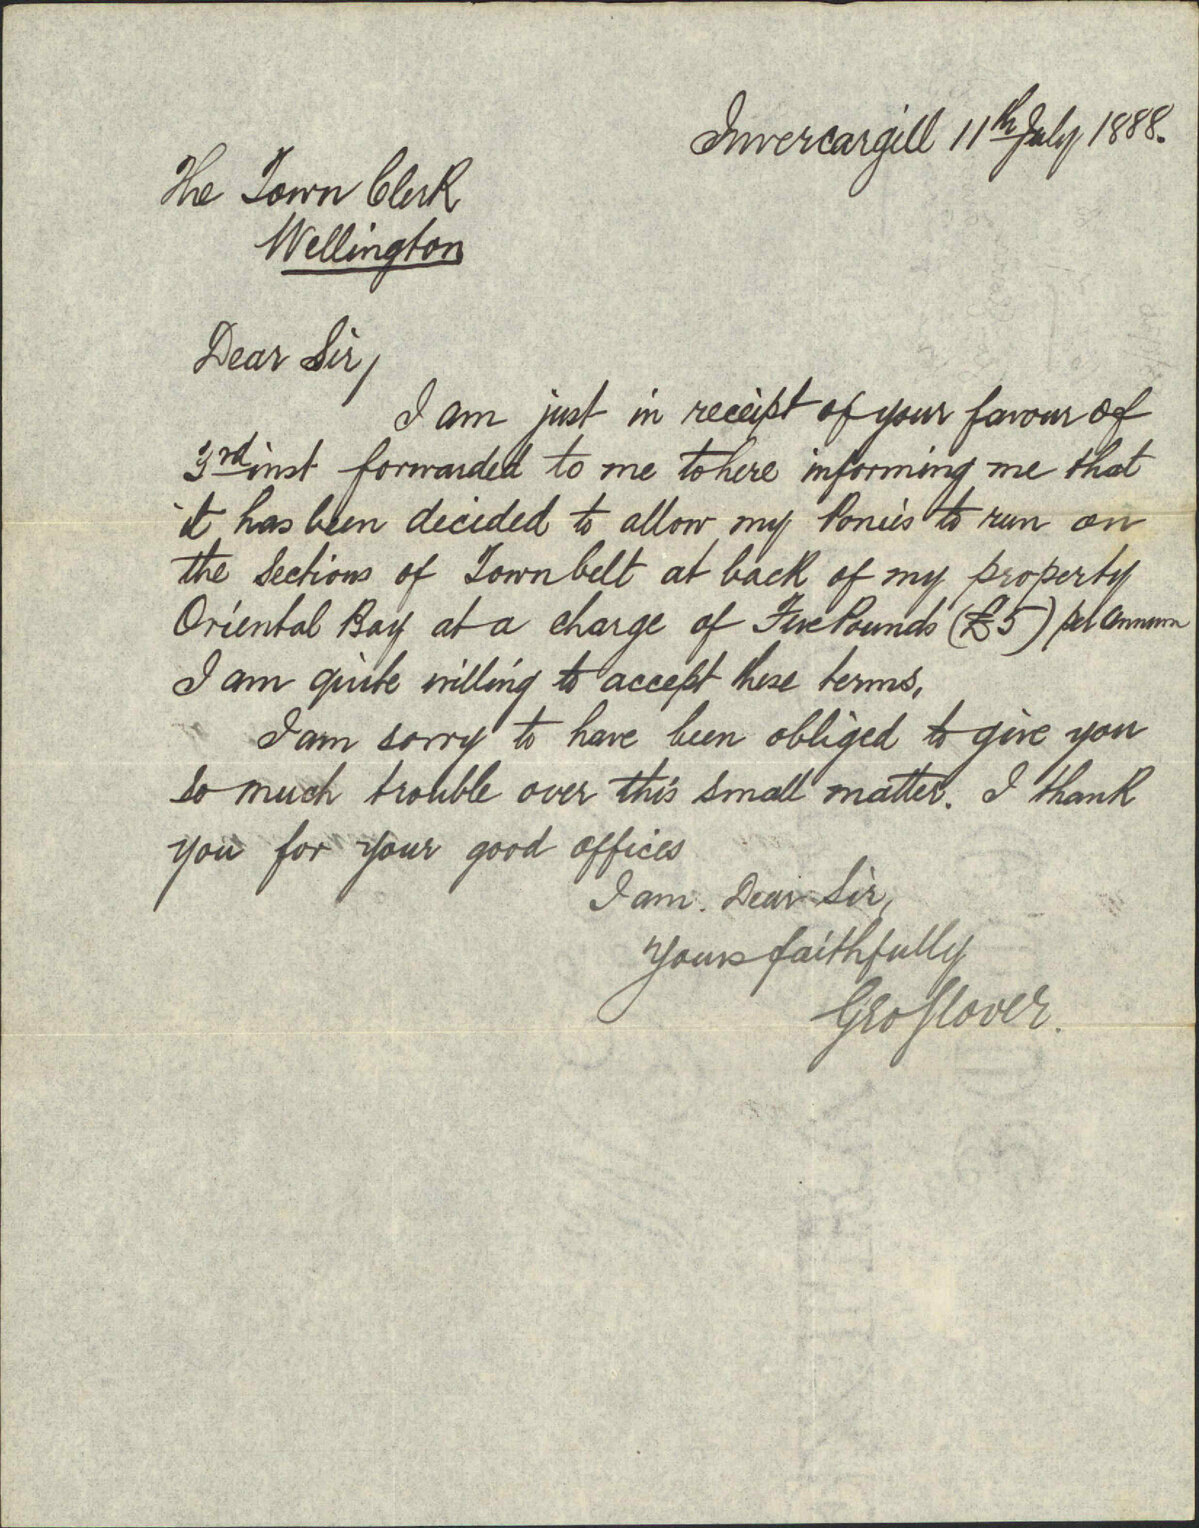 Invercargill 11th July 1888.
The Town Clerk
Wellington
Dear Sir,
I am just in receipt of your favour of
3rd inst forwarded to me to here informing me that
it has been decided to allow my Ponies to run on
the Sections of Town belt at back of my property
Oriental Bay at a charge of Five Pounds (£5) per annum
I am quite willing to accept these terms.
I am sorry to have been obliged to give you
so much trouble over this small matter. I thank
you for your good offices
I am. Dear Sir,
Yours faithfully
Geo Glover.